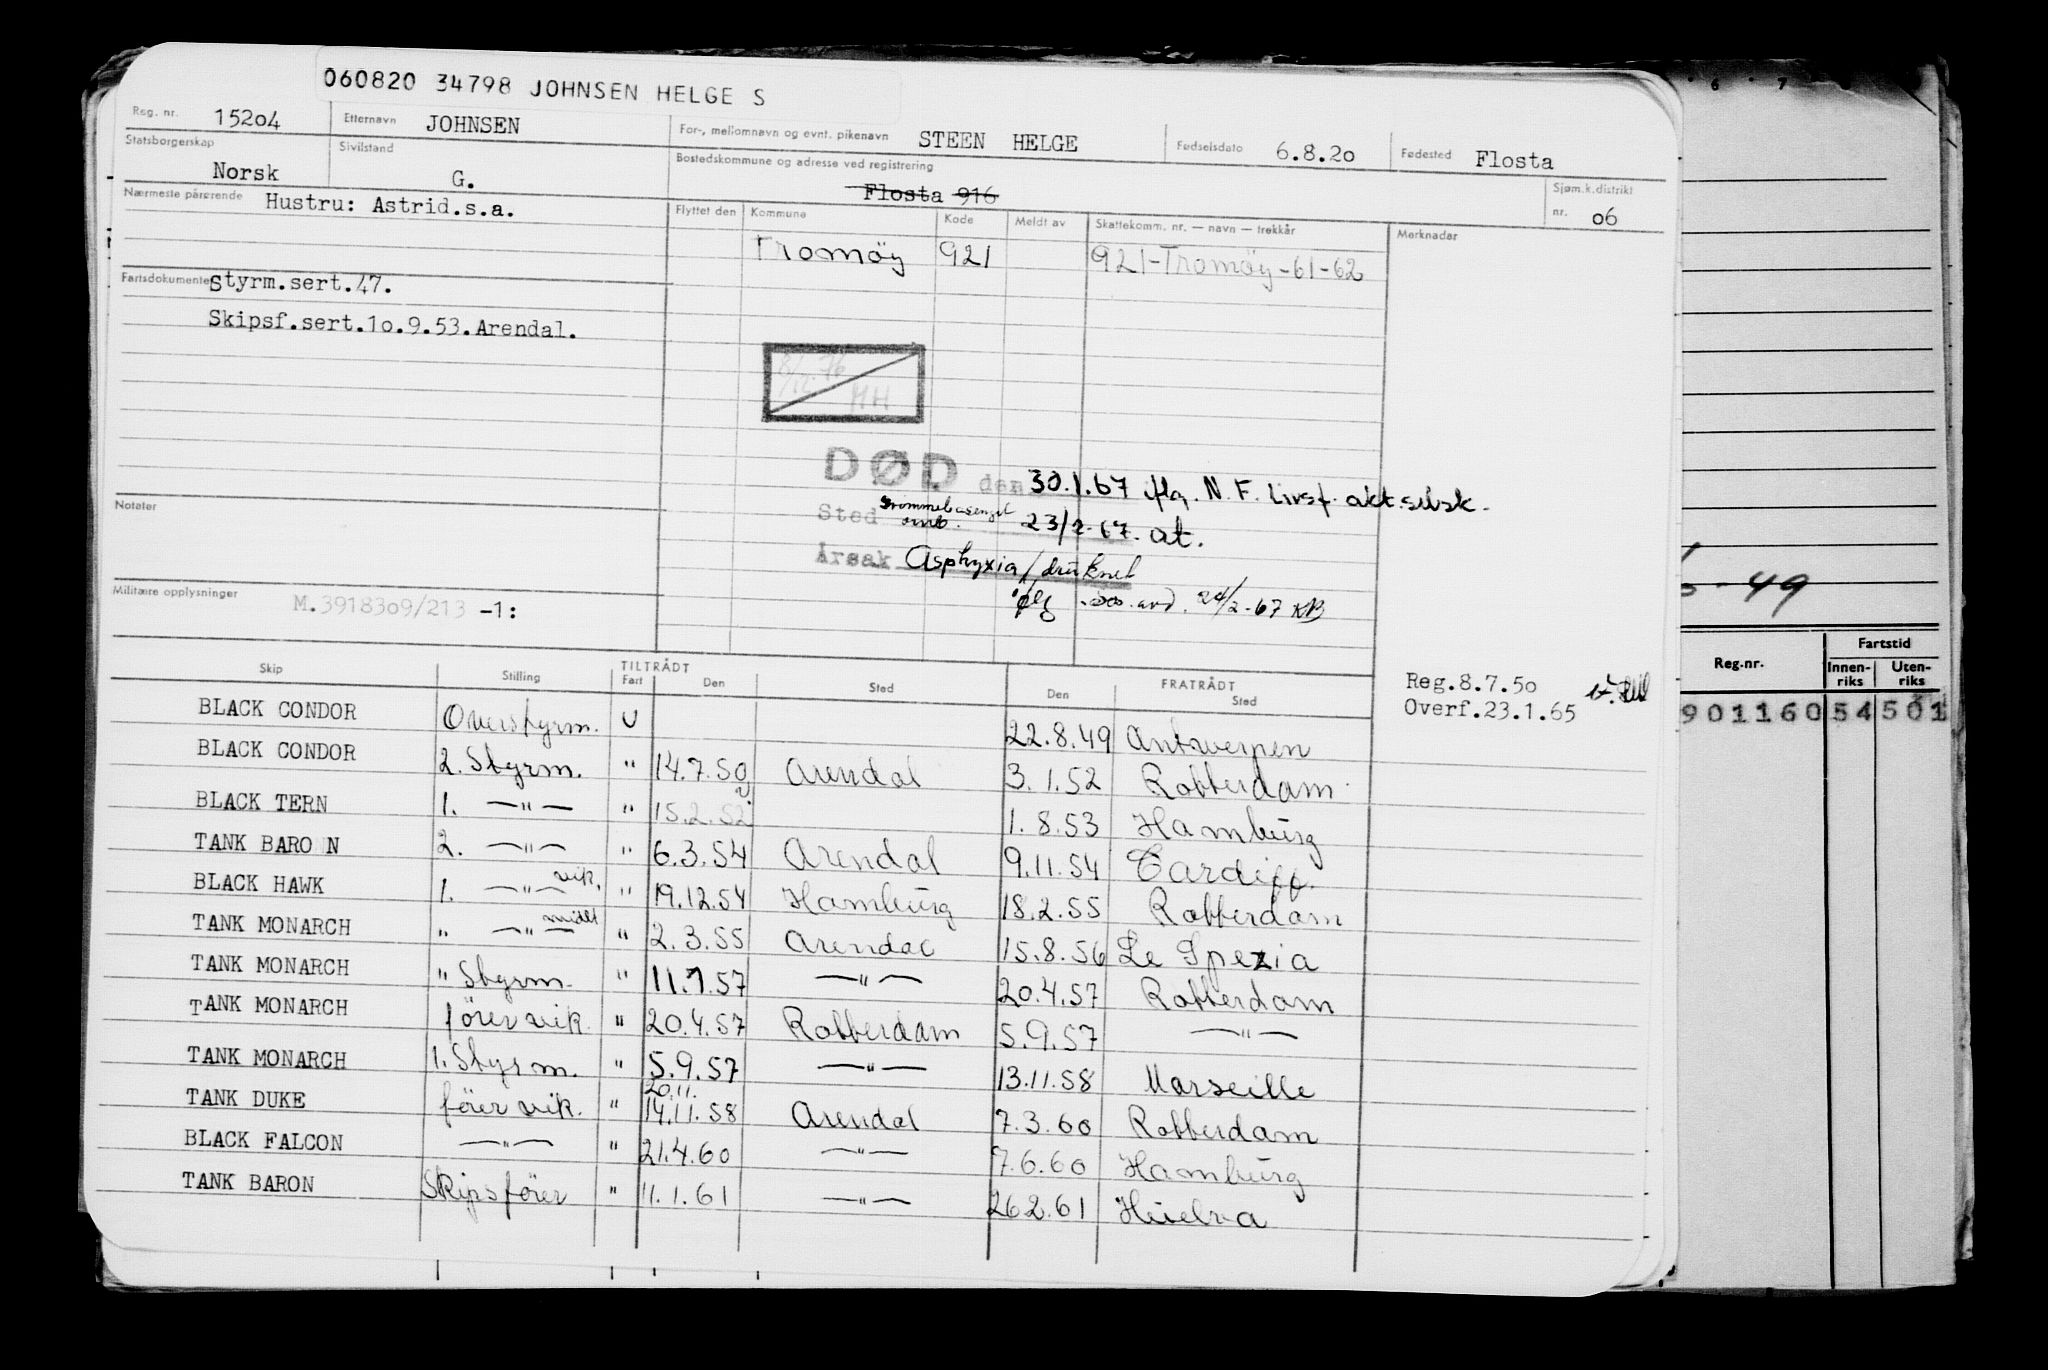 060820 34798 JOHNSEN HELGE S
Reg. nr. 15204 Etternavn JOHNSEN For-, mellomnavn og evnt. pikenavn STEEN HELGE Fødselsdato 6.8.20 Fødested Flosta
Statsborgerskap Norsk Sivilstand G. Bostedskommune og adresse ved registrering Flosta 916 Sjøm.k.distrikt nr. 06
Nærmeste pårørende Hustru: Astrid.s.a.
Flyttet den Kommune Kode Meldt av Skattekomm. nr. — navn — trekkår Merknader
Tromöy 921 921-Tromöy-61-62
Fartsdokumenter Styrm.sert.47.
Skipsf.sert.10.9.53.Arendal.
8/12 76
HH
DØD den 30.1.67 iflg. N. F. Livsf. akt.selsk.
Sted 23/2-67. at.
Årsak Asphyxia/druknet
iflg avd. 24/2-67 KB
Notater
Militære opplysninger M.3918309/213 -1:
6 7 8
-49
Reg.nr. Fartstid
Innenriks Utenriks
901160 54 501
Skip Stilling TILTRÅDT Fart Den Sted FRATRÅDT Den Sted
Reg.8.7.50
Overf.23.1.65
BLACK CONDOR Overstyrm. U 22.8.49 Antwerpen
BLACK CONDOR 2. Styrm. " 14.7.50 Arendal 3.1.52 Rotterdam
BLACK TERN 1. —"— " 15.2.52 1.8.53 Hamburg
TANK BARON 2. —"— " 6.3.54 Arendal 9.11.54 Cardiff.
BLACK HAWK 1. —"— vik. " 19.12.54 Hamburg 18.2.55 Rotterdam
TANK MONARCH " —"— midlt " 2.3.55 Arendal 15.8.56 Le Spezia
TANK MONARCH " Styrm. " 11.1.57 —"— 20.4.57 Rotterdam
TANK MONARCH förer vik. " 20.4.57 Rotterdam 5.9.57 —"—
TANK MONARCH 1. Styrm. " 5.9.57 —"— 13.11.58 Marseille
TANK DUKE förer vik. " 20.11. 14.11.58 Arendal 7.3.60 Rotterdam
BLACK FALCON —"— " 21.4.60 —"— 7.6.60 Hamburg
TANK BARON Skipsförer " 11.1.61 —"— 26.2.61 Huelva